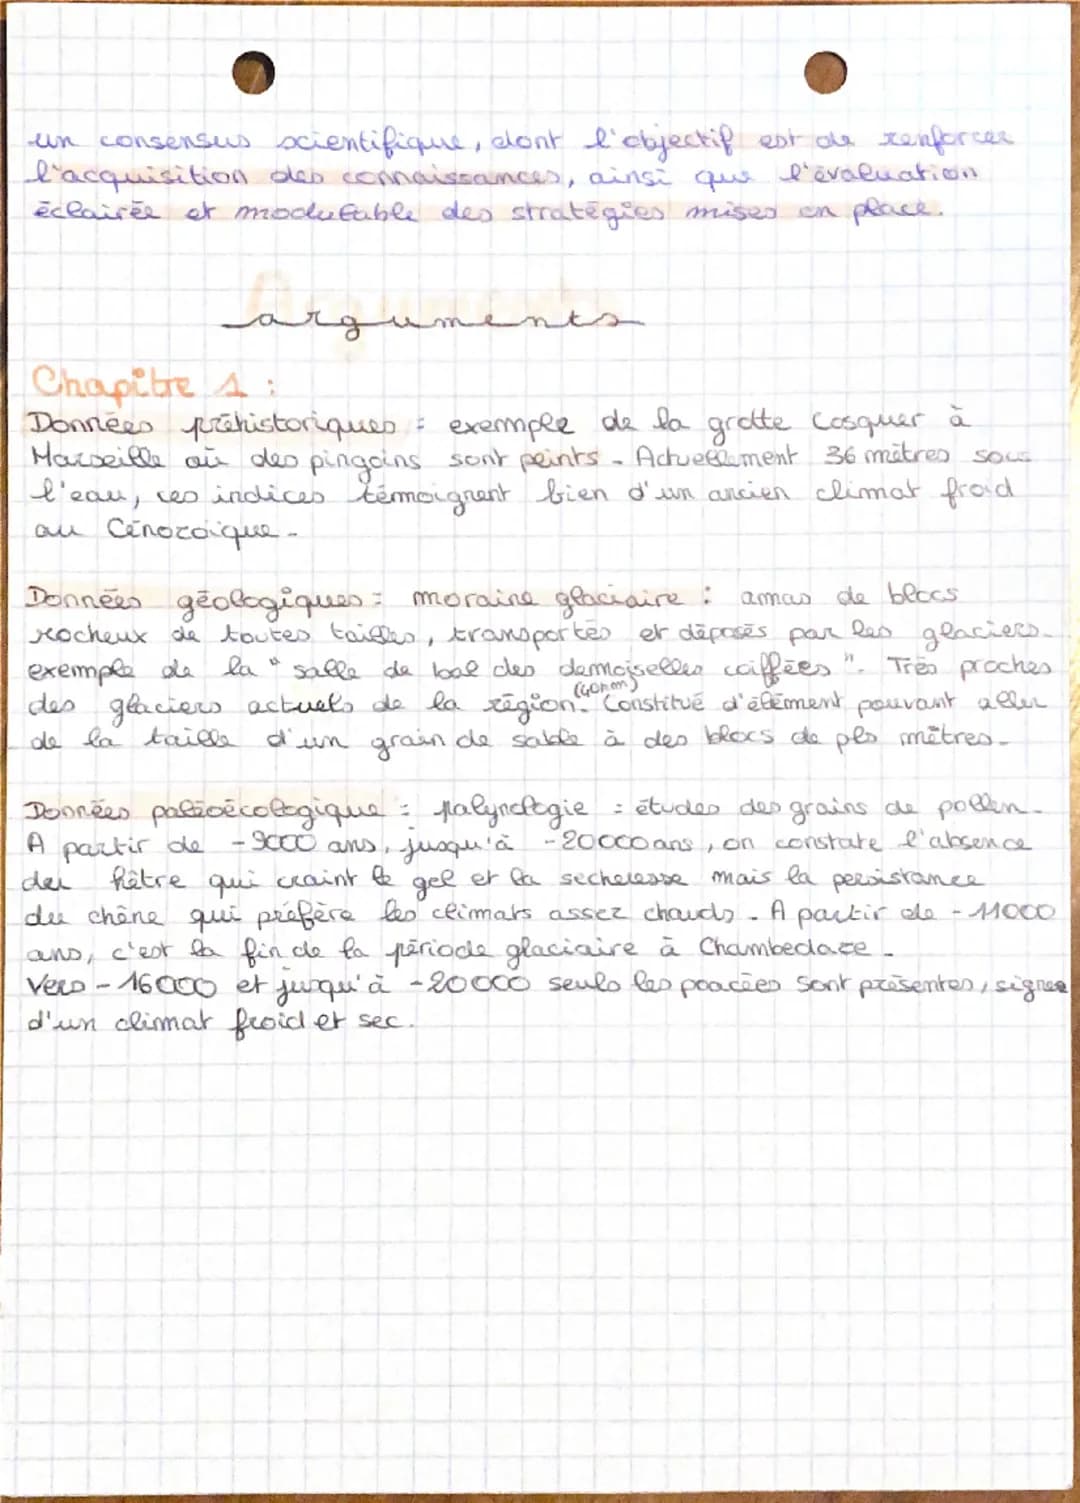 un consensus scientifique, dont l'objectif est de renforcer
l'acquisition des connaissances, ainsi que l'évaluation
éclairée et modulable des stratégies mises en place.
Arguments
arguments
Chapitre 1 :
Données préhistoriques : exemple de la grotte Cosquer à
Marseille où des pingoins sont peints. Actuellement 36 mètres sous
l'eau, ces indices témoignent bien d'un ancien climat froid
au Cénozoïque.
Données géologiques : moraine glaciaire : amas de blocs
rocheux de toutes tailles, transportés et déposés par les glaciers.
exemple de la "salle de bal des demoiselles coiffées". Très proches
des glaciers actuels de la région. (40km) Constitué d'élément pouvant aller
de la taille d'un grain de sable à des blocs de pls mètres.
Données paléoécologique : palynologie : études des grains de pollen.
A partir de -9000 ans, jusqu'à -20000 ans, on constate l'absence
du hêtre qui craint le gel et la secheresse mais la persistance
du chêne qui préfère les climats assez chauds. A partir de -11000
ans, c'est la fin de la période glaciaire à Chambedaze.
Vers -16000 et jusqu'à -20000 seuls les poacées sont présentes, signe
d'un climat froid et sec.